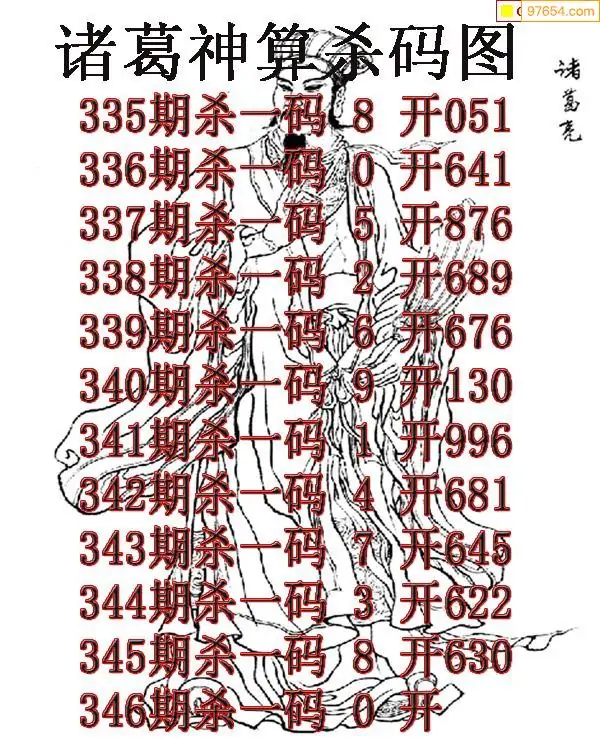 97654.com
诸葛神算杀码图
诸葛亮
335期杀一码 8 开051
336期杀一码 0 开641
337期杀一码 5 开876
338期杀一码 2 开689
339期杀一码 6 开676
340期杀一码 9 开130
341期杀一码 1 开996
342期杀一码 4 开681
343期杀一码 7 开645
344期杀一码 3 开622
345期杀一码 8 开630
346期杀一码 0 开